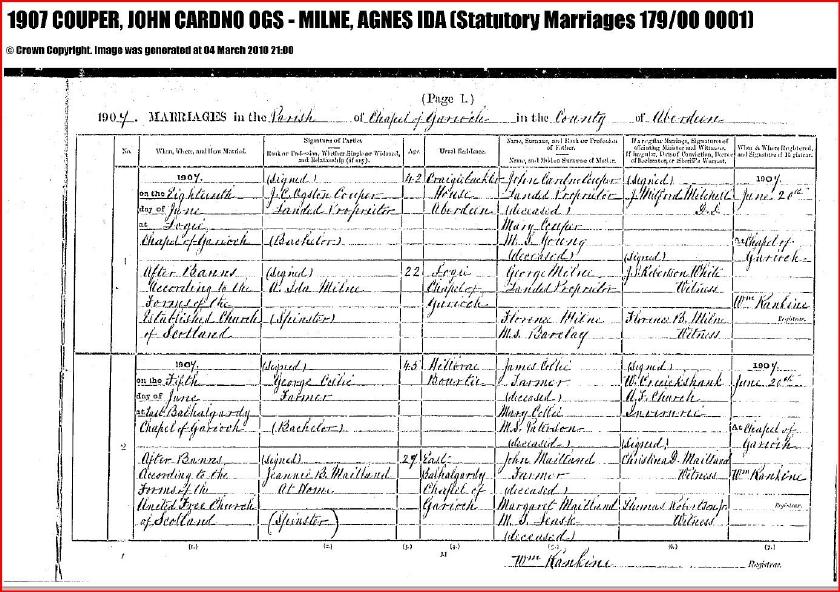 1907 COUPER, JOHN CARDNO OGS - MILNE, AGNES IDA (Statutory Marriages 179/00 0001)
© Crown Copyright. Image was generated at 04 March 2010 21:00
(Page 1.)
1907. MARRIAGES in the Parish of Chapel of Garioch in the County of Aberdeen
No.
When, Where, and How Married.
Signature of Parties
Rank or Profession, Whether Single or Widowed, and Relationship (if any).
Age
Usual Residence.
Name, Surname, and Rank or Profession of Father.
Name, and Maiden Surname of Mother.
If a regular Marriage, Signatures of officiating Minister and Witnesses.
If irregular, Date of Conviction, Decree of Declarator, or Sheriff's Warrant.
When & Where Registered, and Signature of Registrar.
1
1907.
on the Eighteenth
day of June
at Logie
Chapel of Garioch
After Banns
According to the
Forms of the
Established Church
of Scotland
(Signed)
J. C. Ogston Couper
Landed Proprietor
(Bachelor)
(Signed)
A. Ida Milne
(Spinster)
42
22
Craigiebuckler
House
Aberdeen
Logie
Chapel of
Garioch
John Cardno Couper
Landed Proprietor
(deceased)
Mary Couper
M.S. Young
(deceased)
George Milne
Landed Proprietor
Florence Milne
M.S. Barclay
(Signed)
J. Mitford Mitchell
D.D.
(Signed)
J. Roberson White
Witness
Florence B. Milne
Witness
1907
June 20th
At Chapel of
Garioch
Wm Rankine
Registrar.
2
1907.
on the Fifth
day of June
at East Balhalgardy
Chapel of Garioch
After Banns
According to the
Forms of the
United Free Church
of Scotland
(Signed)
George Collie
Farmer
(Bachelor)
(Signed)
Jeannie B. Maitland
At Home
(Spinster)
45
29
Hillbrae
Bourtie
East
Balhalgardy
Chapel of
Garioch
James Collie
Farmer
(deceased)
Mary Collie
M.S. Paterson
(deceased)
John Maitland
Farmer
(deceased)
Margaret Maitland
M.S. Leask
(deceased)
(Signed)
W. Cruickshank
U.F. Church
Inverurie
(Signed)
Christina D. Maitland
Witness
Thomas Robertson Jr
Witness
1907
June 20th
At Chapel of
Garioch
Wm Rankine
Registrar.
(1.)
(2.)
(3.)
(4.)
(5.)
(6.)
(7.)
M
Wm Rankine Registrar.